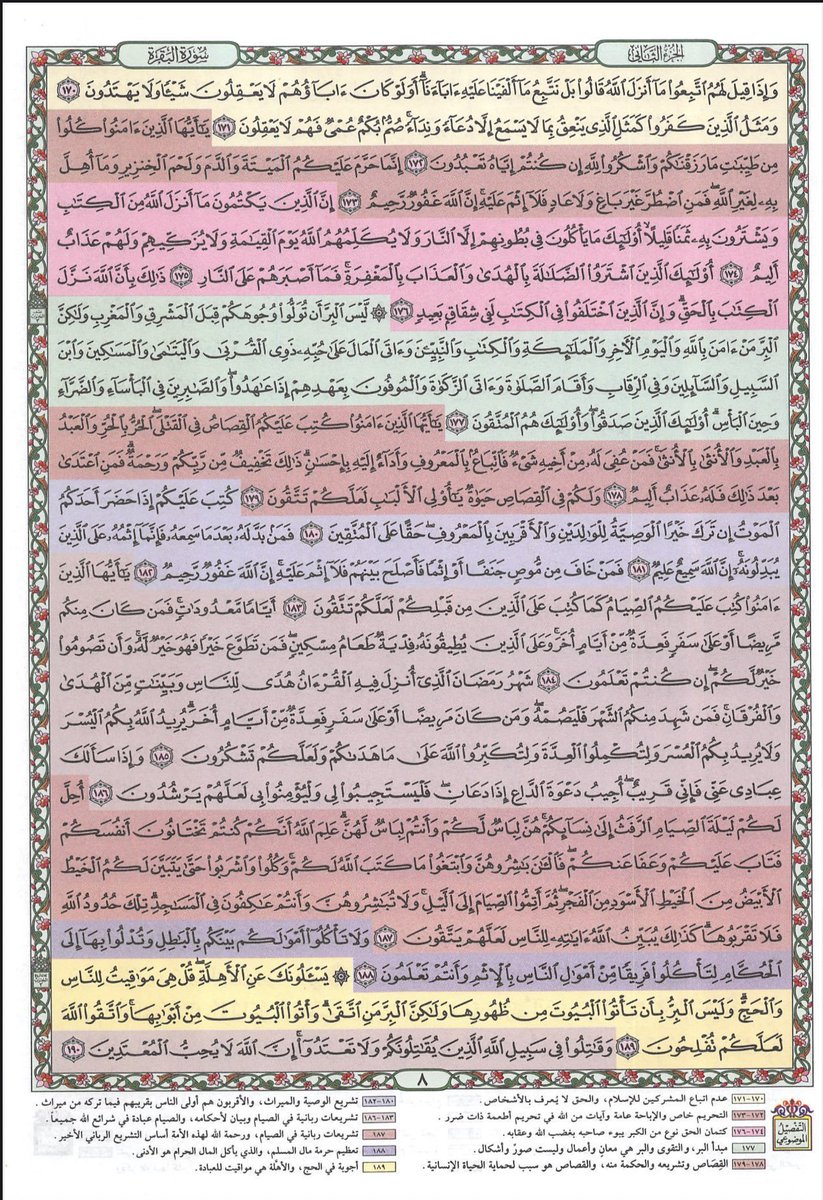 الجزء الثاني
سورة البقرة
وَإِذَا قِيلَ لَهُمُ اتَّبِعُوا مَا أَنزَلَ اللَّهُ قَالُوا بَلْ نَتَّبِعُ مَا أَلْفَيْنَا عَلَيْهِ ءَابَاءَنَا أَوَلَوْ كَانَ ءَابَاؤُهُمْ لَا يَعْقِلُونَ شَيْئًا وَلَا يَهْتَدُونَ ١٧٠
وَمَثَلُ الَّذِينَ كَفَرُوا كَمَثَلِ الَّذِي يَنْعِقُ بِمَا لَا يَسْمَعُ إِلَّا دُعَاءً وَنِدَاءً صُمٌّ بُكْمٌ عُمْيٌ فَهُمْ لَا يَعْقِلُونَ ١٧١ يَـٰأَيُّهَا الَّذِينَ ءَامَنُوا كُلُوا
مِن طَيِّبَاتِ مَا رَزَقْنَاكُمْ وَاشْكُرُوا لِلَّهِ إِن كُنتُمْ إِيَّاهُ تَعْبُدُونَ ١٧٢ إِنَّمَا حَرَّمَ عَلَيْكُمُ الْمَيْتَةَ وَالدَّمَ وَلَحْمَ الْخِنزِيرِ وَمَا أُهِلَّ
بِهِ لِغَيْرِ اللَّهِ فَمَنِ اضْطُرَّ غَيْرَ بَاغٍ وَلَا عَادٍ فَلَا إِثْمَ عَلَيْهِ إِنَّ اللَّهَ غَفُورٌ رَّحِيمٌ ١٧٣ إِنَّ الَّذِينَ يَكْتُمُونَ مَا أَنزَلَ اللَّهُ مِنَ الْكِتَابِ
وَيَشْتَرُونَ بِهِ ثَمَنًا قَلِيلًا أُولَٰئِكَ مَا يَأْكُلُونَ فِي بُطُونِهِمْ إِلَّا النَّارَ وَلَا يُكَلِّمُهُمُ اللَّهُ يَوْمَ الْقِيَامَةِ وَلَا يُزَكِّيهِمْ وَلَهُمْ عَذَابٌ
أَلِيمٌ ١٧٤ أُولَٰئِكَ الَّذِينَ اشْتَرَوُا الضَّلَالَةَ بِالْهُدَىٰ وَالْعَذَابَ بِالْمَغْفِرَةِ فَمَا أَصْبَرَهُمْ عَلَى النَّارِ ١٧٥ ذَٰلِكَ بِأَنَّ اللَّهَ نَزَّلَ
الْكِتَابَ بِالْحَقِّ وَإِنَّ الَّذِينَ اخْتَلَفُوا فِي الْكِتَابِ لَفِي شِقَاقٍ بَعِيدٍ ١٧٦ ۞ لَّيْسَ الْبِرَّ أَن تُوَلُّوا وُجُوهَكُمْ قِبَلَ الْمَشْرِقِ وَالْمَغْرِبِ وَلَٰكِنَّ
الْبِرَّ مَنْ ءَامَنَ بِاللَّهِ وَالْيَوْمِ الْآخِرِ وَالْمَلَائِكَةِ وَالْكِتَابِ وَالنَّبِيِّينَ وَءَاتَى الْمَالَ عَلَىٰ حُبِّهِ ذَوِي الْقُرْبَىٰ وَالْيَتَامَىٰ وَالْمَسَاكِينَ وَابْنَ
السَّبِيلِ وَالسَّائِلِينَ وَفِي الرِّقَابِ وَأَقَامَ الصَّلَوٰةَ وَءَاتَى الزَّكَوٰةَ وَالْمُوفُونَ بِعَهْدِهِمْ إِذَا عَاهَدُوا وَالصَّابِرِينَ فِي الْبَأْسَاءِ وَالضَّرَّاءِ
وَحِينَ الْبَأْسِ أُولَٰئِكَ الَّذِينَ صَدَقُوا وَأُولَٰئِكَ هُمُ الْمُتَّقُونَ ١٧٧ يَـٰأَيُّهَا الَّذِينَ ءَامَنُوا كُتِبَ عَلَيْكُمُ الْقِصَاصُ فِي الْقَتْلَى الْحُرُّ بِالْحُرِّ وَالْعَبْدُ
بِالْعَبْدِ وَالْأُنثَىٰ بِالْأُنثَىٰ فَمَنْ عُفِيَ لَهُ مِنْ أَخِيهِ شَيْءٌ فَاتِّبَاعٌ بِالْمَعْرُوفِ وَأَدَاءٌ إِلَيْهِ بِإِحْسَانٍ ذَٰلِكَ تَخْفِيفٌ مِّن رَّبِّكُمْ وَرَحْمَةٌ فَمَنِ اعْتَدَىٰ
بَعْدَ ذَٰلِكَ فَلَهُ عَذَابٌ أَلِيمٌ ١٧٨ وَلَكُمْ فِي الْقِصَاصِ حَيَوٰةٌ يَـٰأُولِي الْأَلْبَابِ لَعَلَّكُمْ تَتَّقُونَ ١٧٩ كُتِبَ عَلَيْكُمْ إِذَا حَضَرَ أَحَدَكُمُ
الْمَوْتُ إِن تَرَكَ خَيْرًا الْوَصِيَّةُ لِلْوَالِدَيْنِ وَالْأَقْرَبِينَ بِالْمَعْرُوفِ حَقًّا عَلَى الْمُتَّقِينَ ١٨٠ فَمَن بَدَّلَهُ بَعْدَ مَا سَمِعَهُ فَإِنَّمَا إِثْمُهُ عَلَى الَّذِينَ
يُبَدِّلُونَهُ إِنَّ اللَّهَ سَمِيعٌ عَلِيمٌ ١٨١ فَمَنْ خَافَ مِن مُّوصٍ جَنَفًا أَوْ إِثْمًا فَأَصْلَحَ بَيْنَهُمْ فَلَا إِثْمَ عَلَيْهِ إِنَّ اللَّهَ غَفُورٌ رَّحِيمٌ ١٨٢ يَـٰأَيُّهَا الَّذِينَ
ءَامَنُوا كُتِبَ عَلَيْكُمُ الصِّيَامُ كَمَا كُتِبَ عَلَى الَّذِينَ مِن قَبْلِكُمْ لَعَلَّكُمْ تَتَّقُونَ ١٨٣ أَيَّامًا مَّعْدُودَاتٍ فَمَن كَانَ مِنكُم
مَّرِيضًا أَوْ عَلَىٰ سَفَرٍ فَعِدَّةٌ مِّنْ أَيَّامٍ أُخَرَ وَعَلَى الَّذِينَ يُطِيقُونَهُ فِدْيَةٌ طَعَامُ مِسْكِينٍ فَمَن تَطَوَّعَ خَيْرًا فَهُوَ خَيْرٌ لَّهُ وَأَن تَصُومُوا
خَيْرٌ لَّكُمْ إِن كُنتُمْ تَعْلَمُونَ ١٨٤ شَهْرُ رَمَضَانَ الَّذِي أُنزِلَ فِيهِ الْقُرْءَانُ هُدًى لِّلنَّاسِ وَبَيِّنَاتٍ مِّنَ الْهُدَىٰ
وَالْفُرْقَانِ فَمَن شَهِدَ مِنكُمُ الشَّهْرَ فَلْيَصُمْهُ وَمَن كَانَ مَرِيضًا أَوْ عَلَىٰ سَفَرٍ فَعِدَّةٌ مِّنْ أَيَّامٍ أُخَرَ يُرِيدُ اللَّهُ بِكُمُ الْيُسْرَ
وَلَا يُرِيدُ بِكُمُ الْعُسْرَ وَلِتُكْمِلُوا الْعِدَّةَ وَلِتُكَبِّرُوا اللَّهَ عَلَىٰ مَا هَدَاكُمْ وَلَعَلَّكُمْ تَشْكُرُونَ ١٨٥ وَإِذَا سَأَلَكَ
عِبَادِي عَنِّي فَإِنِّي قَرِيبٌ أُجِيبُ دَعْوَةَ الدَّاعِ إِذَا دَعَانِ فَلْيَسْتَجِيبُوا لِي وَلْيُؤْمِنُوا بِي لَعَلَّهُمْ يَرْشُدُونَ ١٨٦ أُحِلَّ
لَكُمْ لَيْلَةَ الصِّيَامِ الرَّفَثُ إِلَىٰ نِسَائِكُمْ هُنَّ لِبَاسٌ لَّكُمْ وَأَنتُمْ لِبَاسٌ لَّهُنَّ عَلِمَ اللَّهُ أَنَّكُمْ كُنتُمْ تَخْتَانُونَ أَنفُسَكُمْ
فَتَابَ عَلَيْكُمْ وَعَفَا عَنكُمْ فَالْـَٰٔنَ بَاشِرُوهُنَّ وَابْتَغُوا مَا كَتَبَ اللَّهُ لَكُمْ وَكُلُوا وَاشْرَبُوا حَتَّىٰ يَتَبَيَّنَ لَكُمُ الْخَيْطُ
الْأَبْيَضُ مِنَ الْخَيْطِ الْأَسْوَدِ مِنَ الْفَجْرِ ثُمَّ أَتِمُّوا الصِّيَامَ إِلَى اللَّيْلِ وَلَا تُبَاشِرُوهُنَّ وَأَنتُمْ عَاكِفُونَ فِي الْمَسَاجِدِ تِلْكَ حُدُودُ اللَّهِ
فَلَا تَقْرَبُوهَا كَذَٰلِكَ يُبَيِّنُ اللَّهُ ءَايَاتِهِ لِلنَّاسِ لَعَلَّهُمْ يَتَّقُونَ ١٨٧ وَلَا تَأْكُلُوا أَمْوَالَكُم بَيْنَكُم بِالْبَاطِلِ وَتُدْلُوا بِهَا إِلَى
الْحُكَّامِ لِتَأْكُلُوا فَرِيقًا مِّنْ أَمْوَالِ النَّاسِ بِالْإِثْمِ وَأَنتُمْ تَعْلَمُونَ ١٨٨ ۞ يَسْأَلُونَكَ عَنِ الْأَهِلَّةِ قُلْ هِيَ مَوَاقِيتُ لِلنَّاسِ
وَالْحَجِّ وَلَيْسَ الْبِرُّ بِأَن تَأْتُوا الْبُيُوتَ مِن ظُهُورِهَا وَلَٰكِنَّ الْبِرَّ مَنِ اتَّقَىٰ وَأْتُوا الْبُيُوتَ مِنْ أَبْوَابِهَا وَاتَّقُوا اللَّهَ
لَعَلَّكُمْ تُفْلِحُونَ ١٨٩ وَقَاتِلُوا فِي سَبِيلِ اللَّهِ الَّذِينَ يُقَاتِلُونَكُمْ وَلَا تَعْتَدُوا إِنَّ اللَّهَ لَا يُحِبُّ الْمُعْتَدِينَ ١٩٠
٨
التفصيل الموضوعي
١٧٠-١٧١ عدم اتباع المشركين للإسلام، والحق لا يُعرف بالأشخاص.
١٧٢-١٧٣ التحريم خاص والإباحة عامة وآيات من الله في تحريم أطعمة ذات ضرر.
١٧٤-١٧٦ كتمان الحق نوع من الكبر يبوء صاحبه بغضب الله وعقابه.
١٧٧ مبدأ البر، والتقوى والبر هي معانٍ وأعمال وليست صورٌ وأشكال.
١٧٨-١٧٩ القِصَاص وتشريعه والحكمة منه، والقصاص هو سبب لحماية الحياة الإنسانية.
١٨٠-١٨٢ تشريع الوصية والميراث، والأقربون هم أولى الناس بقريبهم فيما تركه من ميراث.
١٨٣-١٨٦ تشريعات ربانية في الصيام وبيان لأحكامه، والصيام عبادة في شرائع الله جميعاً.
١٨٧ تشريعات ربانية في الصيام، ورحمة الله لهذه الأمة أساس التشريع الرباني الأخير.
١٨٨ تعظيم حرمة مال المسلم، والذي يأكل المال الحرام هو الأدنى.
١٨٩ أجوبة في الحج، والأهلّة هي مواقيت للعبادة.